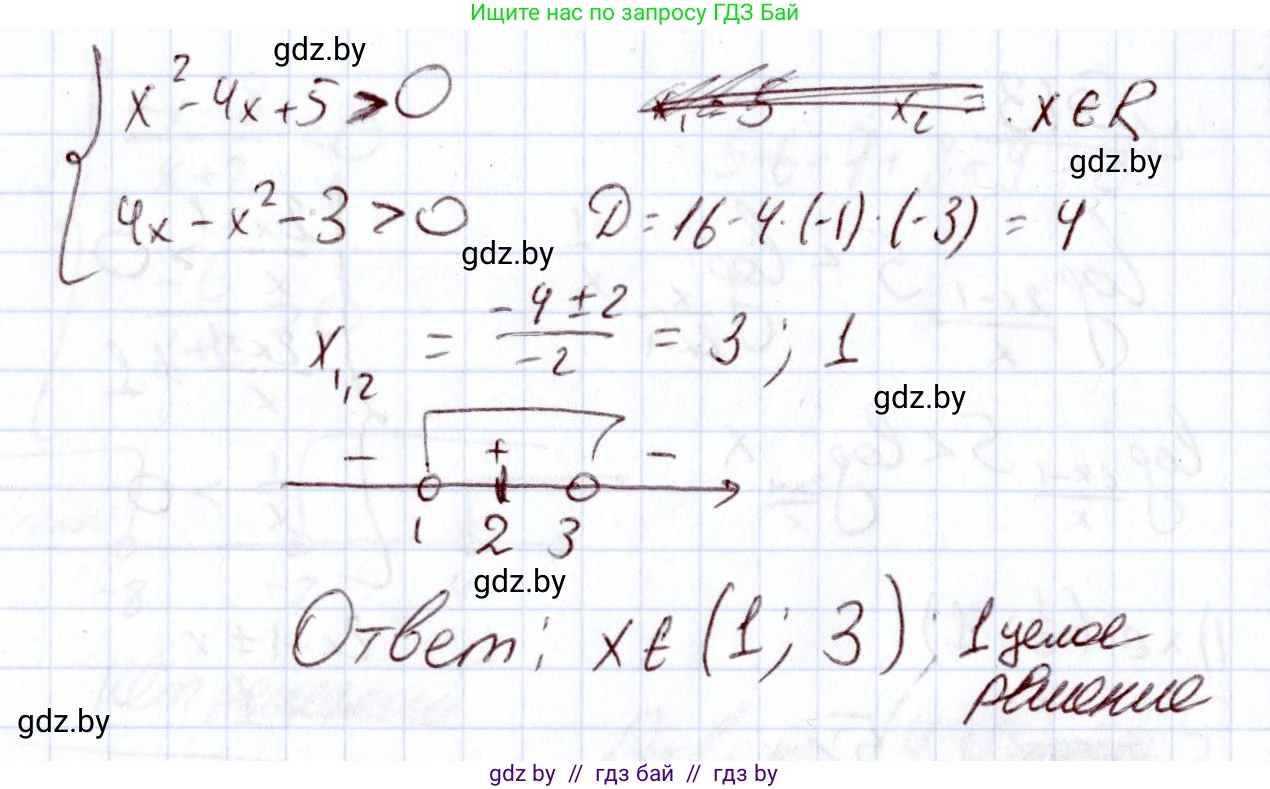 Ищите нас по запросу ГДЗ Бай
gdz.by
x²-4x+5>0 x∈R
gdz.by
4x-x²-3>0 D=16-4·(-1)·(-3)=4
gdz.by
x₁,₂ = (-4±2)/(-2) = 3; 1
gdz.by
- + -
1 2 3
gdz.by
Ответ: x∈(1; 3); 1 целое
решение
gdz.by
gdz by // гдз бай // гдз by